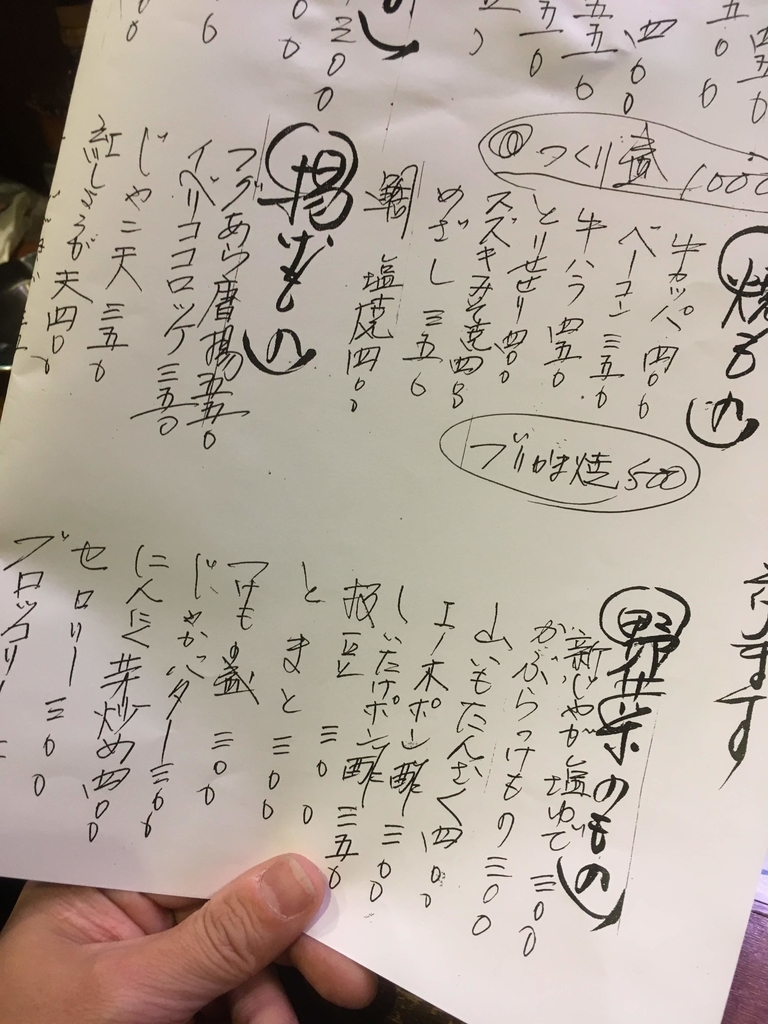 つくり盛 1000
焼もの
牛カッパ 四〇〇
ベーコン 三五〇
牛ハラ 四五〇
とりせせり 四〇〇
スズキみそ焼 四〇〇
めざし 三五〇
鯛 塩焼 四〇〇
ブリかま焼 500
揚げもの
フグあら唐揚 五五〇
イベリココロッケ 三五〇
じゃこ天 三五〇
紅しょうが天 四〇〇
ります
野菜のもの
新じゃが塩ゆで 三〇〇
かぶらつけもの 三〇〇
山いもたんざく 四〇〇
エノ木ポン酢 三〇〇
しいたけポン酢 三五〇
枝豆 三〇〇
とまと 三〇〇
つけもの盛 三〇〇
じゃがバター 三〇〇
にんにく芽炒め 四〇〇
セロリー 三〇〇
ブロッコリー